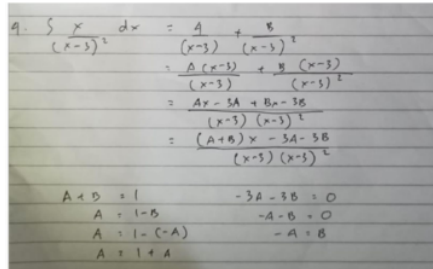 9. ∫ x/(x-3)² dx = A/(x-3) + B/(x-3)²
= A(x-3)/(x-3) + B(x-3)/(x-3)²
= Ax - 3A + Bx - 3B/(x-3)(x-3)²
= (A+B)x - 3A - 3B/(x-3)(x-3)²
A+B = 1 -3A - 3B = 0
A = 1-B -A-B = 0
A = 1-(-A) -A = B
A = 1+A